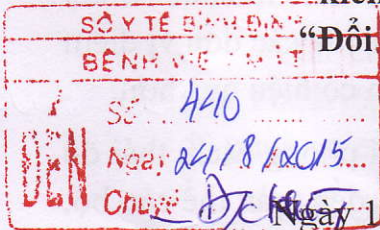 kiến
SỞ Y TẾ BÌNH ĐỊNH
"Đổi
BỆNH VIỆN MẮT
ĐẾN
Số: 440
Ngày 24/8/2015
Chuyển
Ngày 1